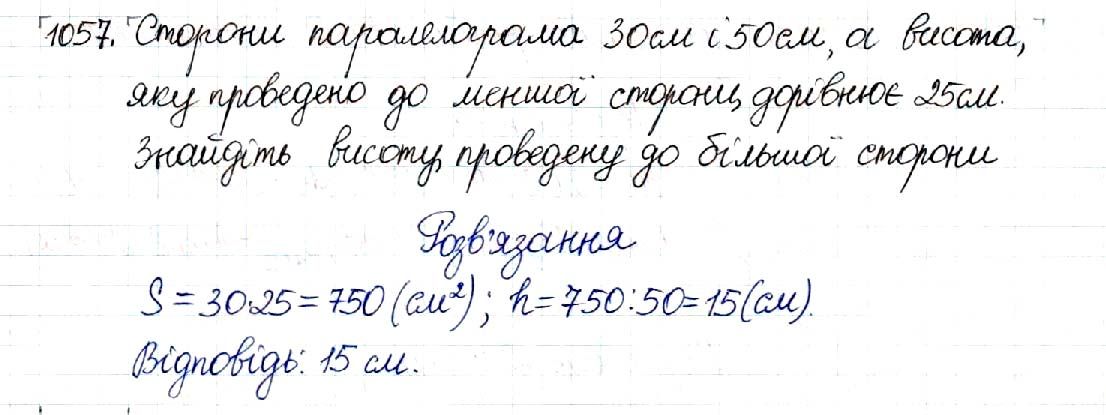 1057. Сторони паралелограма 30см і 50см, а висота,
яку проведено до меншої сторони, дорівнює 25см.
Знайдіть висоту, проведену до більшої сторони
Розв'язання
S = 30·25 = 750 (см²); h = 750:50 = 15 (см).
Відповідь: 15 см.